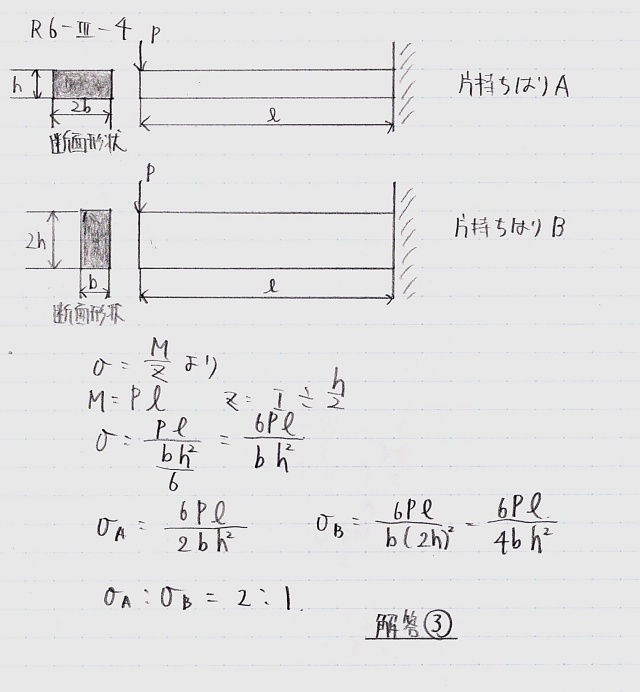 R6-Ⅲ-4
P
h
2b
断面形状
l
片持ちはりA
P
2h
b
断面形状
l
片持ちはりB
σ = M/Z より
M = Pl  Z = I ÷ h/2
σ = Pl/(bh²/6) = 6Pl/bh²
σA = 6Pl/2bh²  σB = 6Pl/b(2h)² = 6Pl/4bh²
σA : σB = 2 : 1.
解答③